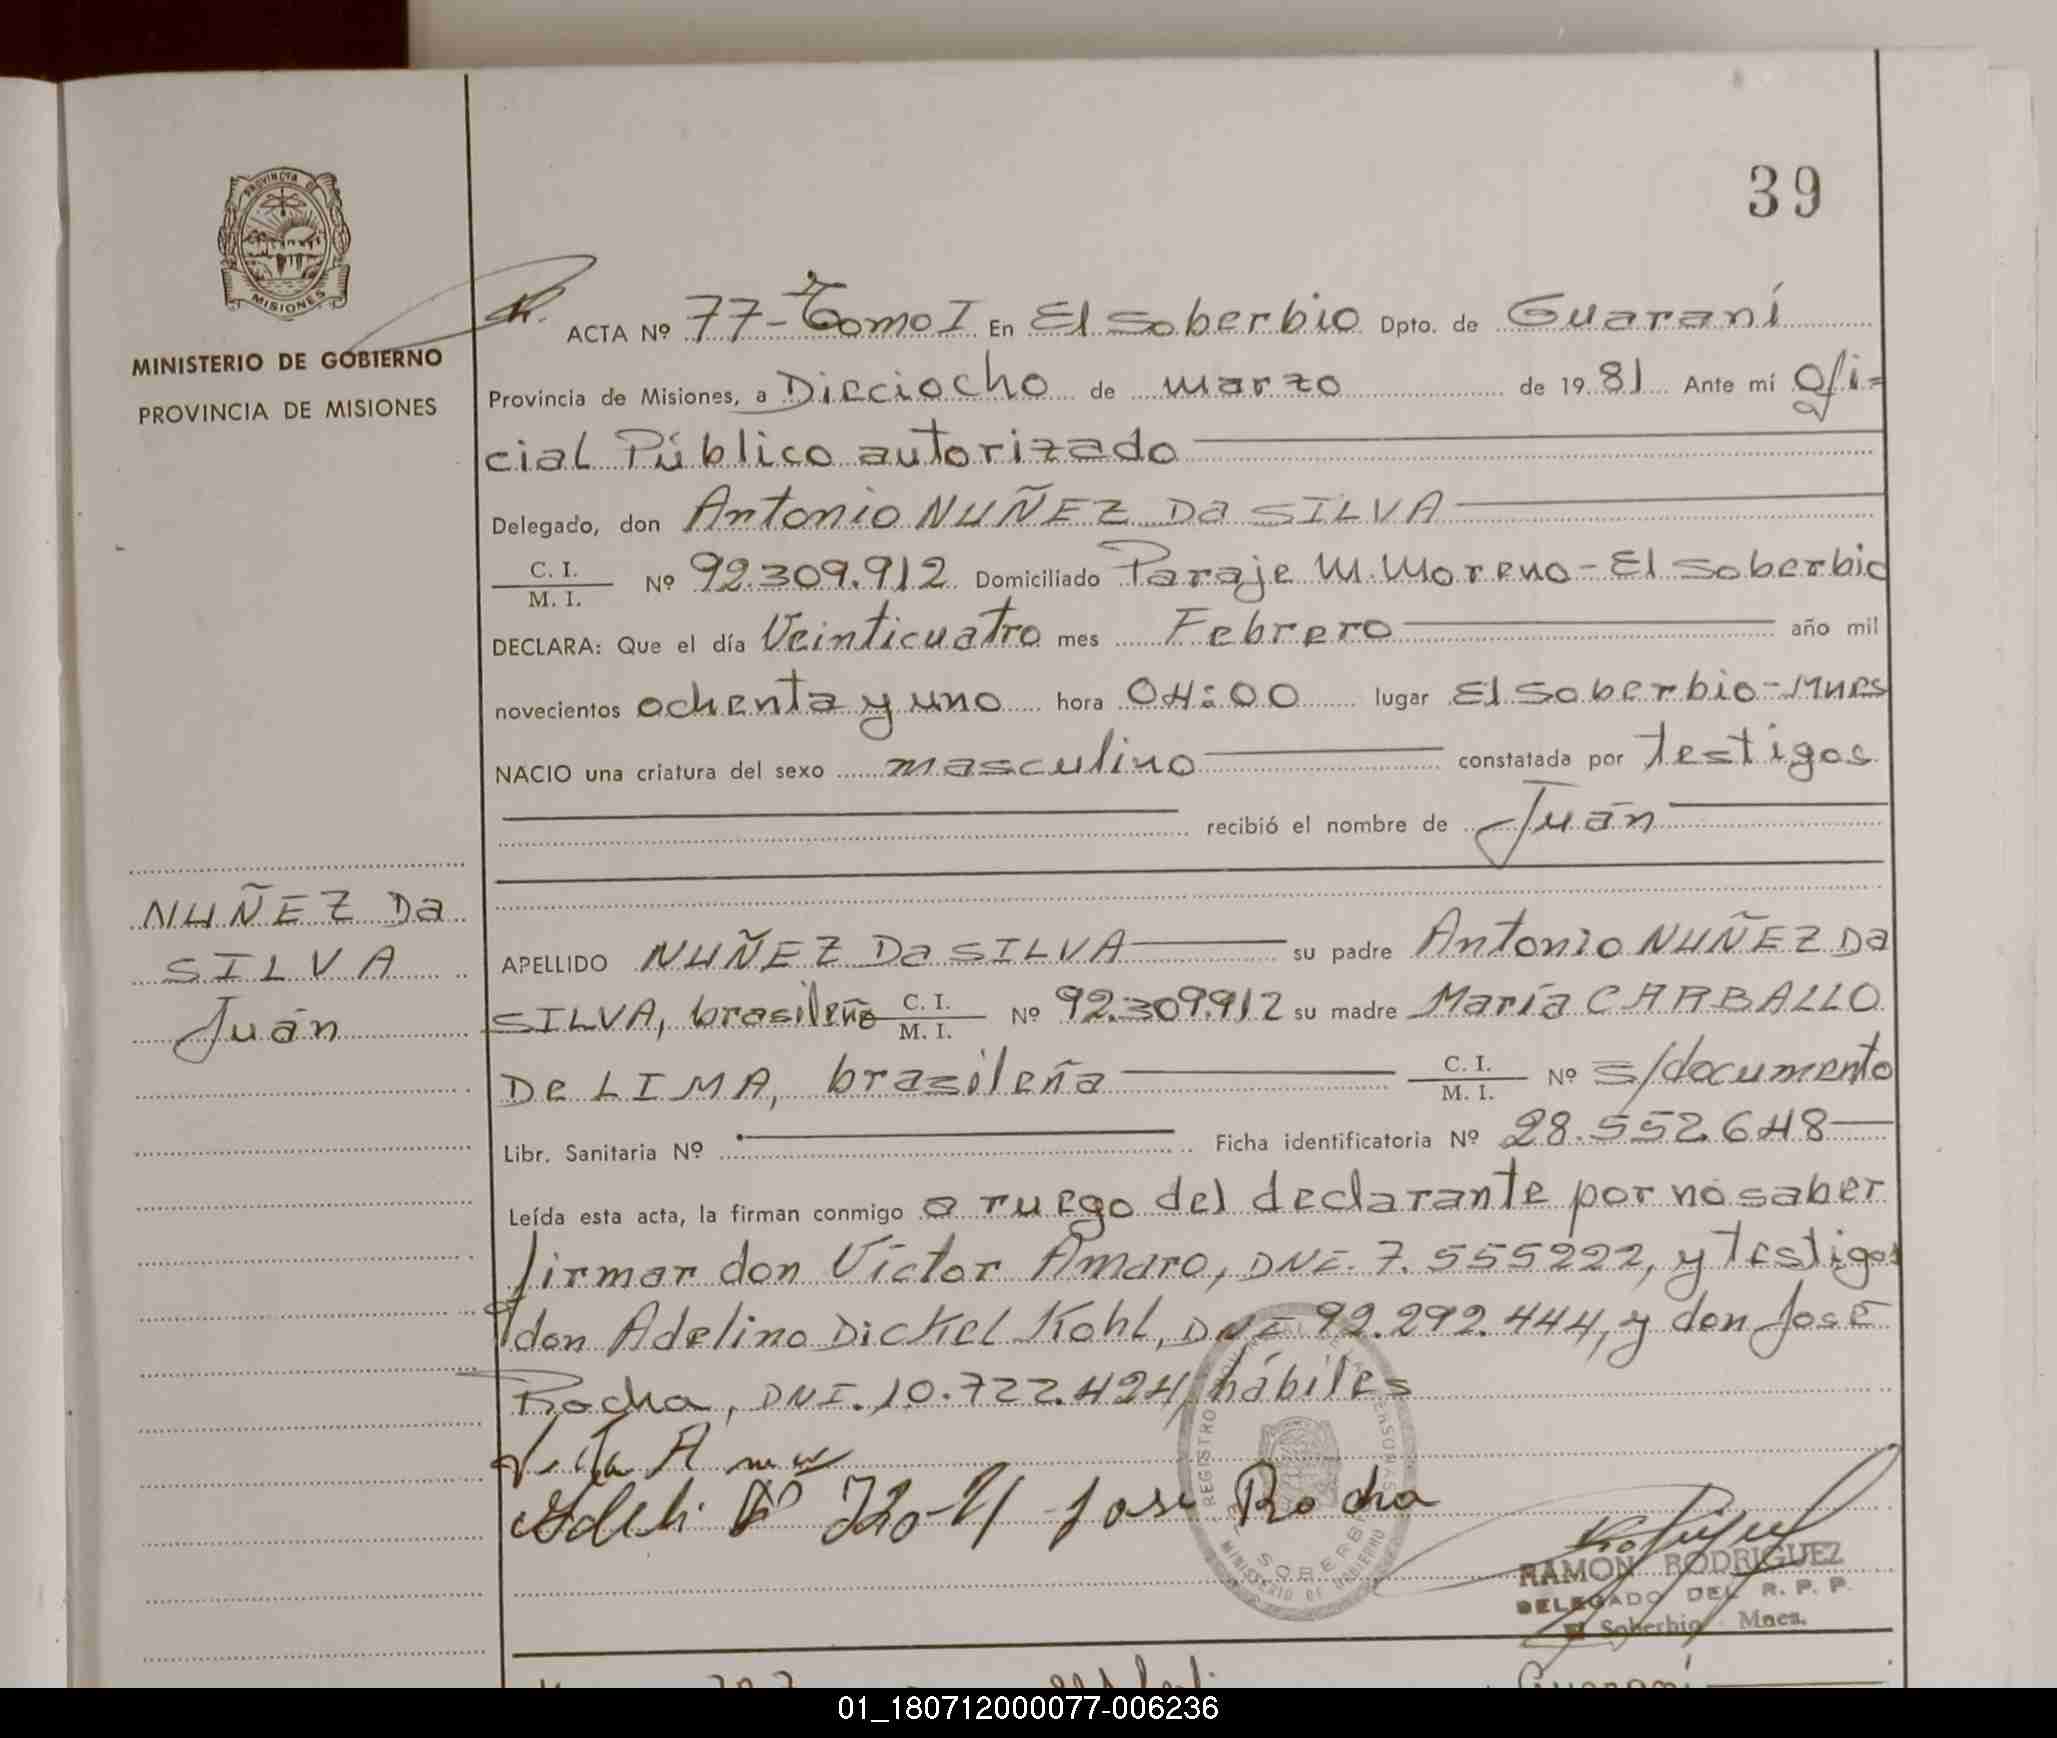 39
PROVINCIA DE
MISIONES
MINISTERIO DE GOBIERNO
PROVINCIA DE MISIONES
ACTA Nº 77-Tomo I En El Soberbio Dpto. de Guaraní
Provincia de Misiones, a Dieciocho de marzo de 1981 Ante mí Ofi=
cial Público autorizado
Delegado, don Antonio NUÑEZ Da SILVA
C. I.
M. I. Nº 92.309.912 Domiciliado Paraje M. Moreno-El Soberbio
DECLARA: Que el día Veinticuatro mes Febrero año mil
novecientos ochenta y uno hora 04:00 lugar El Soberbio-Mnes
NACIO una criatura del sexo masculino constatada por testigos
recibió el nombre de Juán
NUÑEZ Da
SILVA
Juán
APELLIDO NUÑEZ Da SILVA su padre Antonio NUÑEZ Da
SILVA, brasileño C. I. M. I. Nº 92.309.912 su madre María CARBALLO
De LIMA, brasileña C. I. M. I. Nº s/documento
Libr. Sanitaria Nº Ficha identificatoria Nº 28.552.648
Leída esta acta, la firman conmigo a ruego del declarante por no saber
firmar don Víctor Amaro, DNI. 7.555222, y testigos
don Adelino Dickel Kohl, DNI 92.292.444, y don José
Rocha, DNI. 10.722.424, hábiles
José Rocha
REGISTRO
SOBERB
MINISTERIO DE GOBIERNO
RAMON RODRIGUEZ
DELEGADO DEL R. P. P.
El Soberbio Mnes.
01_180712000077-006236